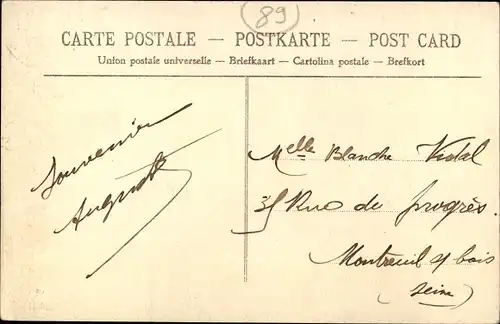 89
CARTE POSTALE — POSTKARTE — POST CARD
Union postale universelle — Briefkaart — Cartolina postale — Brefkort
Souvenir
Auguste
Melle Blanche Vidal
Rue du progrès.
Montreuil s/ bois
(Seine)